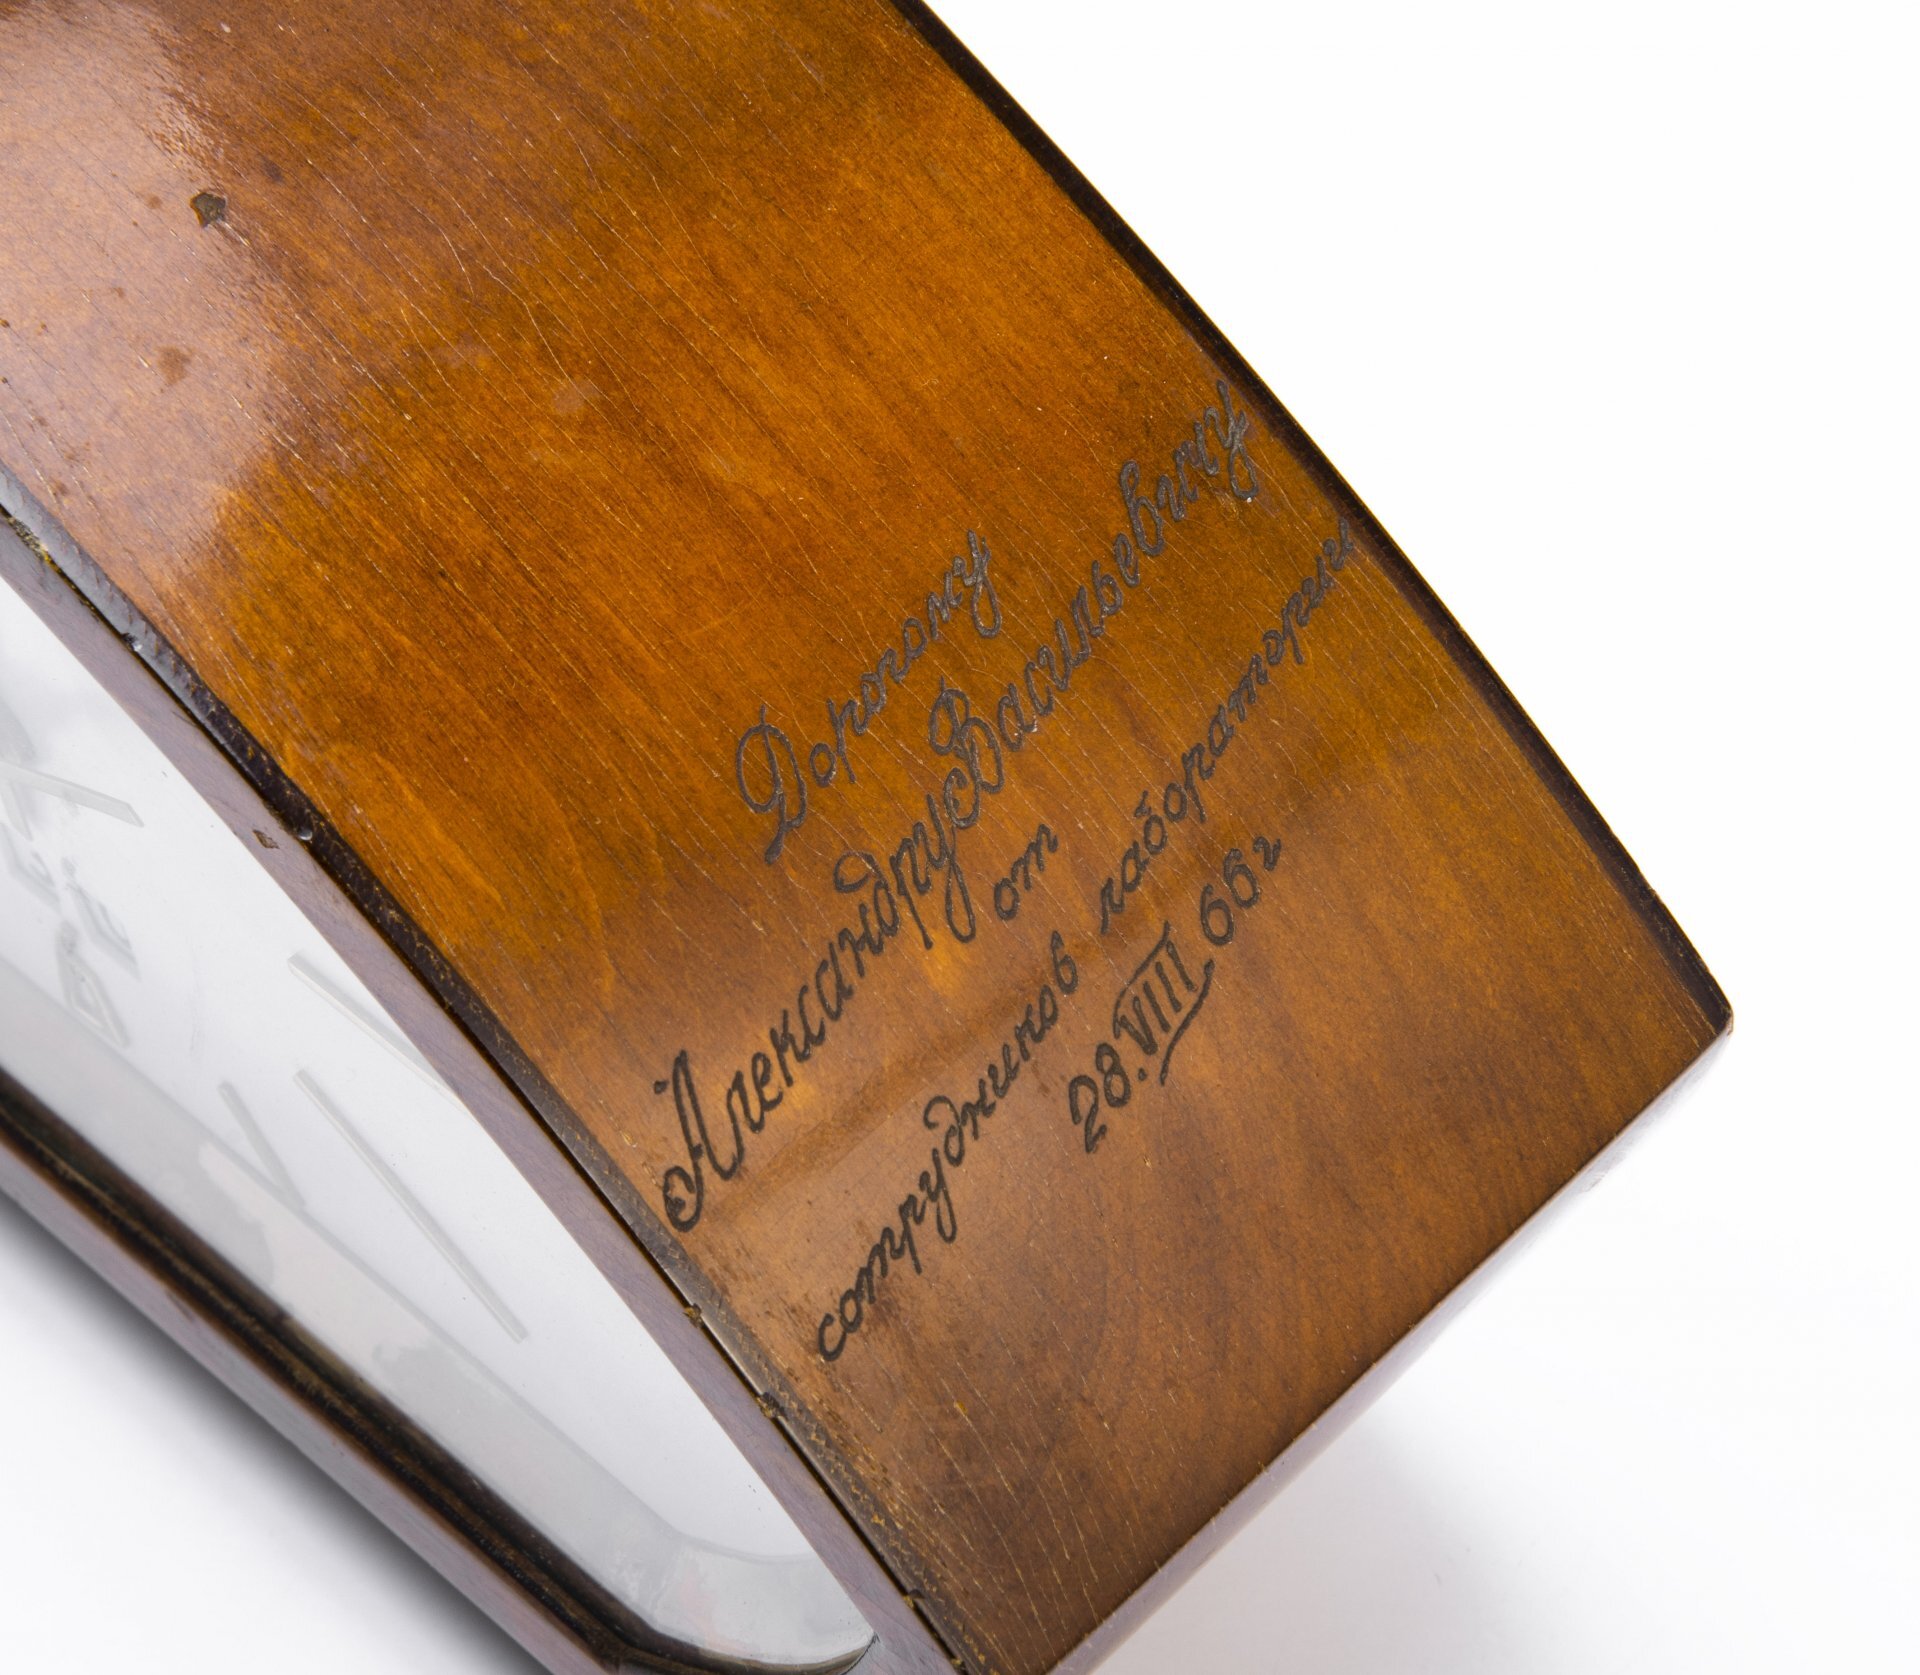 Дорогому
Александру Васильевичу
от
сотрудников лаборатории
28.VIII 66 г